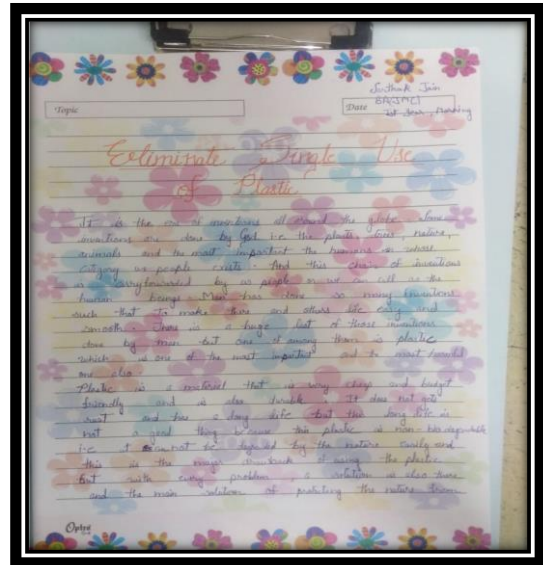 Sarthak Jain
Topic
Date
BA(JMC)
1st Year, Morning
Eliminate Single Use
of Plastic
It is the era of inventions all around the globe. Some
inventions are done by God i.e. the plants, trees, nature,
animals and the most important the humans in whose
category we people exists. And this chain of inventions
is carryforwarded by us people or we can call as the
human beings. Man has done so many inventions
such that to make there and others life easy and
smooth. There is a huge list of those inventions
done by man but one of among them is plastic
which is one of the most important and the most harmful
one also.
Plastic is a material that is very cheap and budget
friendly and is also durable. It does not gets
rust and has a long life but this long life is
not a good thing because this plastic is non-biodegradable
i.e. it cannot be by the nature easily and
this is the major drawback of using the plastic.
But with every problem, a solution is also there
and the main solution of the nature from
Optra